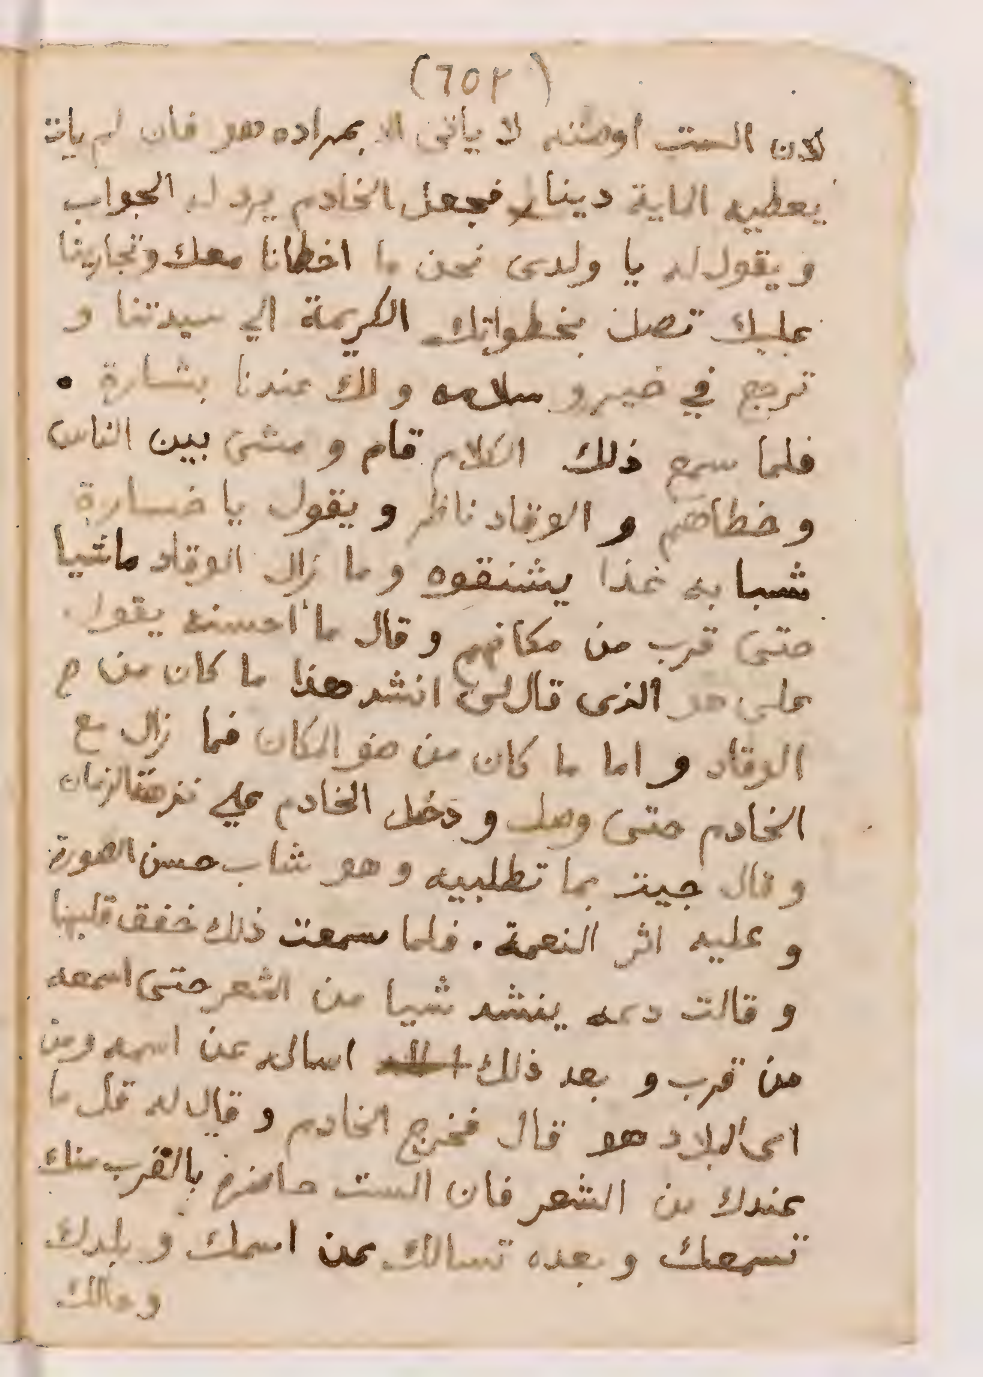 (٦٥٢)
لان الست اوصته لا ياتى الا بمراده هو فان لم يات
يعطيه الماية دينار فجعل الخادم يرد له الجواب
و يقول له يا ولدى نحن ما اخطانا معك وتجارينا
عليك تصل بخطواتك الكريمة الي سيدتنا و
ترجع في خير و سلامه و لك عندنا بشارة ٠
فلما سمع ذلك الكلام قام و مشى بين الناس
و خطاهم و الوقاد ناظر و يقول يا خسارة
شبا به غدا يشنقوه و ما زال الوقاد ماشيا
حتى قرب من مكانهم و قال ما احسنه يقول
على هو الذى قال لى انشد هذا ما كان من
الوقاد و اما ما كان من ضو المكان فما زال مع
الخادم حتى وصل و دخل الخادم علي نزهة الزمان
و قال جيت بما تطلبيه و هو شاب حسن الصورة
و عليه اثر النعمة ٠ فلما سمعت ذلك خفق قلبها
و قالت دعه ينشد شيا من الشعر حتى اسمعه
من قرب و بعد ذلك اساله عن اسمه ومن
اى البلاد هو قال فخرج الخادم و قال له قل ما
عندك من الشعر فان الست حاضرة بالقرب منك
تسمعك و بعده تسالك عن اسمك و بلدك
و حالك